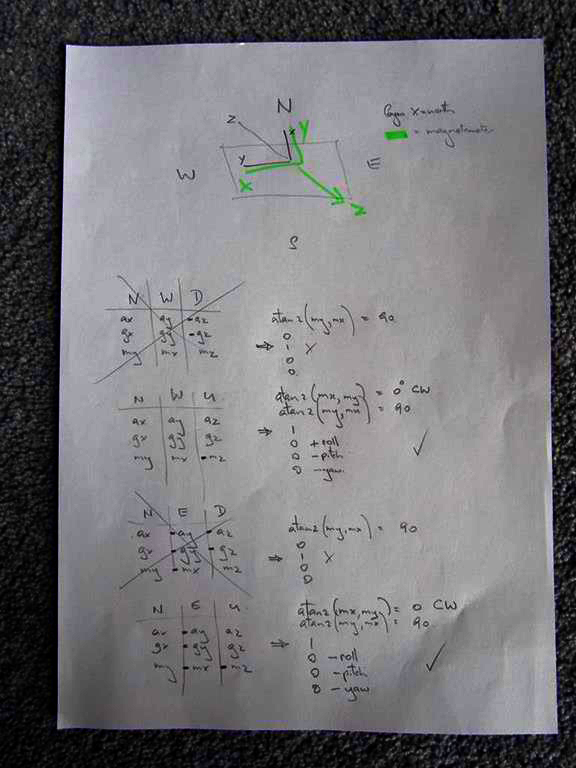 N
Z
x
Y
X = north
= magnetometer
y
X
W
E
Z
S
N | W | D
ax | ay | -az
gx | gy | -gz
my | mx | mz
atan2(my,mx) = 90
⇒
0
1 X
0
0
N W U
ax ay az
gx gy gz
my mx -mz
atan2(mx,my) = 0° CW
atan2(my,mx) = 90
⇒
1
0 +roll
0 -pitch
0 -yaw
✓
N E D
ax -ay -az
gx -gy -gz
my -mx mz
atan2(my,mx) = 90
⇒
0
1 X
0
0
N E U
ax -ay az
gx -gy gz
my -mx -mz
atan2(mx,my) = 0 CW
atan2(my,mx) = 90
⇒
1
0 -roll
0 -pitch
0 -yaw
✓